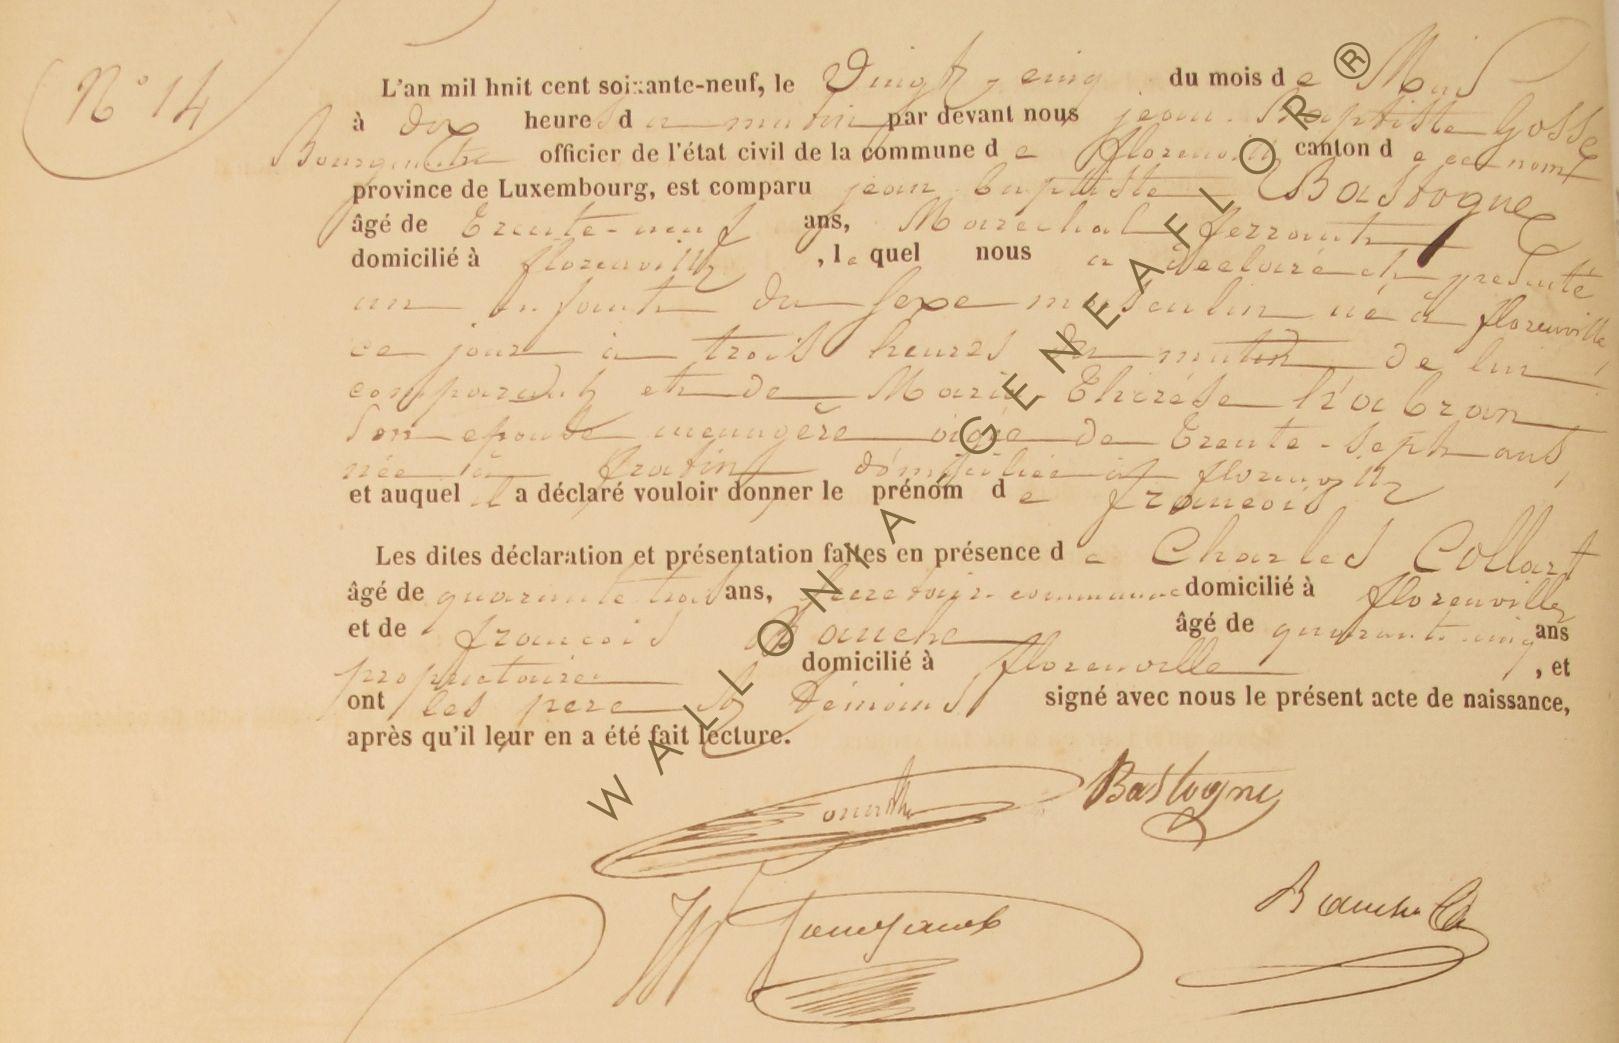 N° 14
L'an mil hnit cent soixante-neuf, le Vingt-cinq du mois de Mai
à dix heures du matin par devant nous jean Baptiste Gosse
Bourgmestre officier de l'état civil de la commune de florenville canton de ce nom
province de Luxembourg, est comparu jean baptiste Bastogne
âgé de Trente-neuf ans, Marechal ferrant
domicilié à florenville, lequel nous a declaré et presenté
un enfant du sexe masculin né à florenville
ce jour à trois heures du matin de lui
comparant et de Marie Thérèse
son epouse menagère agée de Trente-sept ans,
née à domiciliée à florenville
et auquel il a déclaré vouloir donner le prénom de francois
Les dites déclaration et présentation faites en présence de Charles Collart
âgé de quarante trois ans, secretaire communal domicilié à florenville
et de francois Blanche âgé de quarante cinq ans
proprietaire domicilié à florenville, et
ont les pere & témoins signé avec nous le présent acte de naissance,
après qu'il leur en a été fait lecture.
Bastogne
WALLONIA GENEAFLOR®